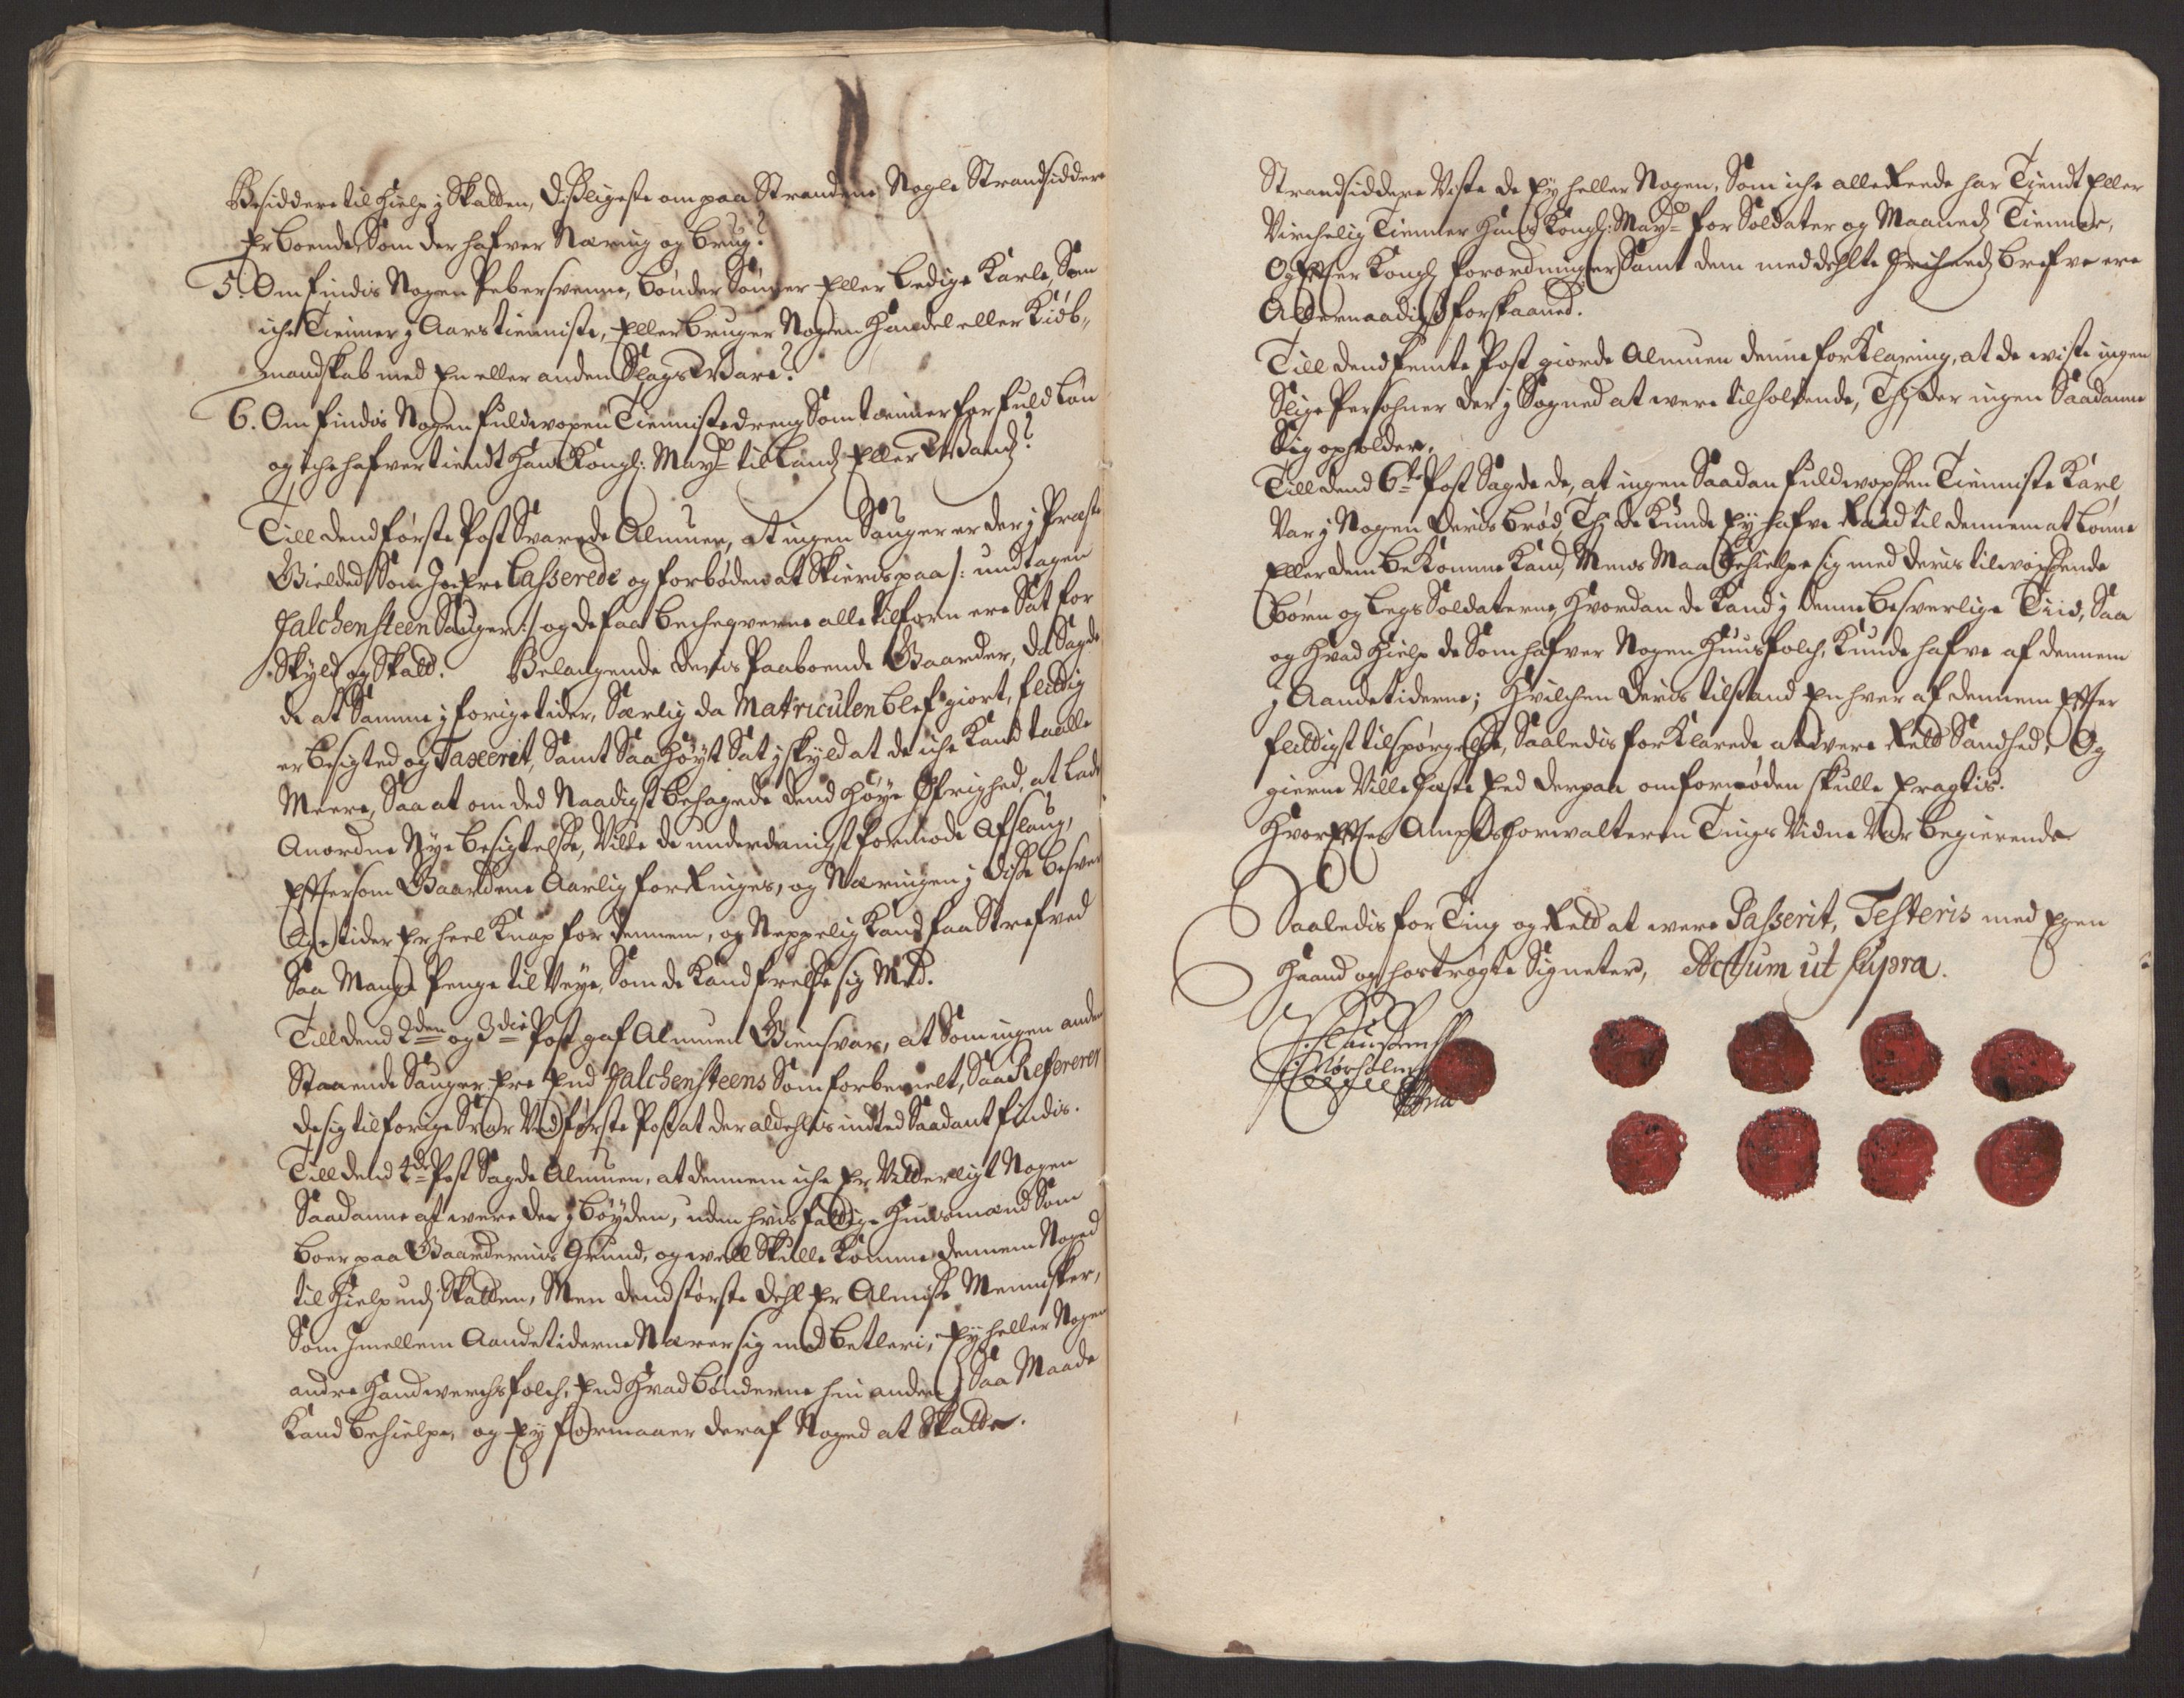 Besiddere til Hielp j Skatten, disligeste om paa Strandene Nogle Strandsiddere
Er boende, Som der hafver Næring og brug?
5. Om findis Nogen Pebersvenne, bönder Sönner Eller Ledige Karle, Som
iche Tienner j Aars tienniste, Eller bruger Nogen Handel eller Kiöb-
mandskab med En eller anden Slags Vare?
6. Om findis Nogen fuldvoxen Tienniste dreng Som tienner for fuld Lön
og iche hafver tiendt Hans Kongl: Mayts til Lands Eller Vands?
Till dend förste Post Svarede Almuen, at ingen Sauger er der j Præste
Gieldet Som Jo Ere Casserede og forböden at Skieris paa /: undtagen
Falchensteen Sauger :/ og de faa bechqverne alle tilforn ere Sat for
Skyld og Skatt. Belangende deris Paaboende Gaarder, da Sagde
de at Samme j forige tider, Særlig da Matriculen blef giort, flitig
er besigted og Taxerit, Samt Saa Höyt Sat j skyld at de iche Kand taalle
Meere, Saa at om ded Naadigst behagede dend Höye Öfrighed, at lade
Anordne Nye besigtelsse, Ville de underdanigst formode Afslaug,
Eftersom Gaardene Aarlig forringes, og Næringen j disse besver
lige tider Er heel Knap for dennem, og Neppelig Kand faa Strefved
Saa Mange Penge til Veye, Som de Kand frelsse sig Med.
Till dend 2den og 3die Post gaf Almuen Giensvar, at Som ingen anden
Staaende Sauger Ere End Falchensteens Som forbemelt, Saa Refererer
de sig til forige Svar Ved förste Post at der aldehlis intted Saadant findis.
Till dend 4de Post Sagde Almuen, at dennem iche Er Vitterligt Nogen
Saadanne at være der j böyden, uden hvis fattige Huusmænd Som
boer paa Gaardernis Grund, og vell Skulle Komme dennem Noged
til Hielp udj Skatten, Men dend störste dehl Er Almisse Mennisker,
Som Jmellem Aandetiderne Nærer sig med betleri, Ey heller Nogen
andre Handverchsfolch, End Hvad bönderne hin anden j Saa Maade
Kand behielpe, og Ey formaaer deraf Noged at Skatte.
Strandsiddere Viste de Ey heller Nogen, Som iche allereede har Tiendt Eller
Virchelig Tienner Hans Kongl: Mayts for Soldater og Maaneds Tienner,
Og Efter Kongl forordninger Samt dem meddehlte friheds brefve ere
Allernaadigst forskaaned.
Till dend femte Post giorde Almuen denne forklaring, at de viste ingen
Slige Persohner der j Sognet at were tilholdende, Thj der ingen Saadanne
Sig opholder.
Till dend 6te Post Sagde de, at ingen Saadan fuldvoxen Tienniste Karl
Var j Nogen deris bröd, Thj de Kunde Ey hafve Raad til dennem at Lönne
Eller dem be Komme Kand, Mens Maa behielpe sig med deris tilvoxende
börn og Legs Soldaterne, Hvordan de Kand j denne besverlige Tiid, Saa
og Hvad Hielp de Som hafver Nogen Huusfolch, Kunde hafve af dennem
j Aandetiderne; Hvilchen deris tilstand En hver af dennem Efter
flittigst tilspörgelsse, Saaledis forklarede at were Rett Sandhed, Og
gierne Ville Hæste Eed derpaa om fornöden skulle Eragtis.
Hvor Efter Amptsforvalteren Tings Vidne Var begierende
Saaledis for Ting og Rett at were Passerit, Testeris med Egen
Haand og hoströgte Signeter, Actum ut supra.